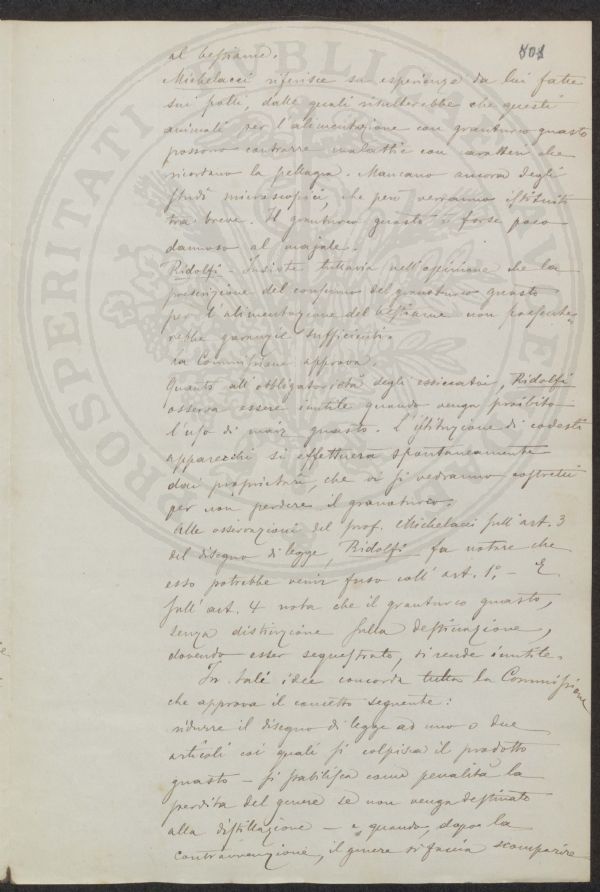 801
al bestiame.
Michelacci riferisce su esperienze da lui fatte
sui polli, dalle quali risulterebbe che questi
animali per l'alimentazione con granturco guasto
possono contrarre malattie con caratteri che
ricordano la pellagra. Mancano ancora degli
studi microscopici, che però verranno istituiti
tra breve. Il granturco guasto è forse poco
dannoso al majale.
Ridolfi - Insiste tuttavia nell'opinione che la
proscrizione del consumo del granturco guasto
per l'alimentazione del bestiame non presente-
rebbe garanzie sufficienti.
La Commissione approva.
Quanto all'obbligatorietà degli essiccatoi, Ridolfi
osserva essere inutile quando venga proibito
l'uso di maiz guasto. L'istituzione di codesti
apparecchi si effettuerà spontaneamente
dai proprietari, che vi si vedranno costretti
per non perdere il granoturco.
Alle osservazioni del prof. Michelacci sull'art. 3
del disegno di legge, Ridolfi fa notare che
esso potrebbe venir fuso coll'art. 1º. - E
sull'art. 4 nota che il granturco guasto,
senza distinzione sulla destinazione,
dovendo esser sequestrato, si rende inutile.
In tali idee concorda tutta la Commissione
che approva il concetto seguente:
ridurre il disegno di legge ad uno o due
articoli coi quali si colpisca il prodotto
guasto - si stabilisca come penalità la
perdita del genere se non venga destinato
alla distillazione - e quando, dopo la
contravvenzione, il genere si faccia scomparire
PROSPERITATI PUBLICAE AUGENDAE